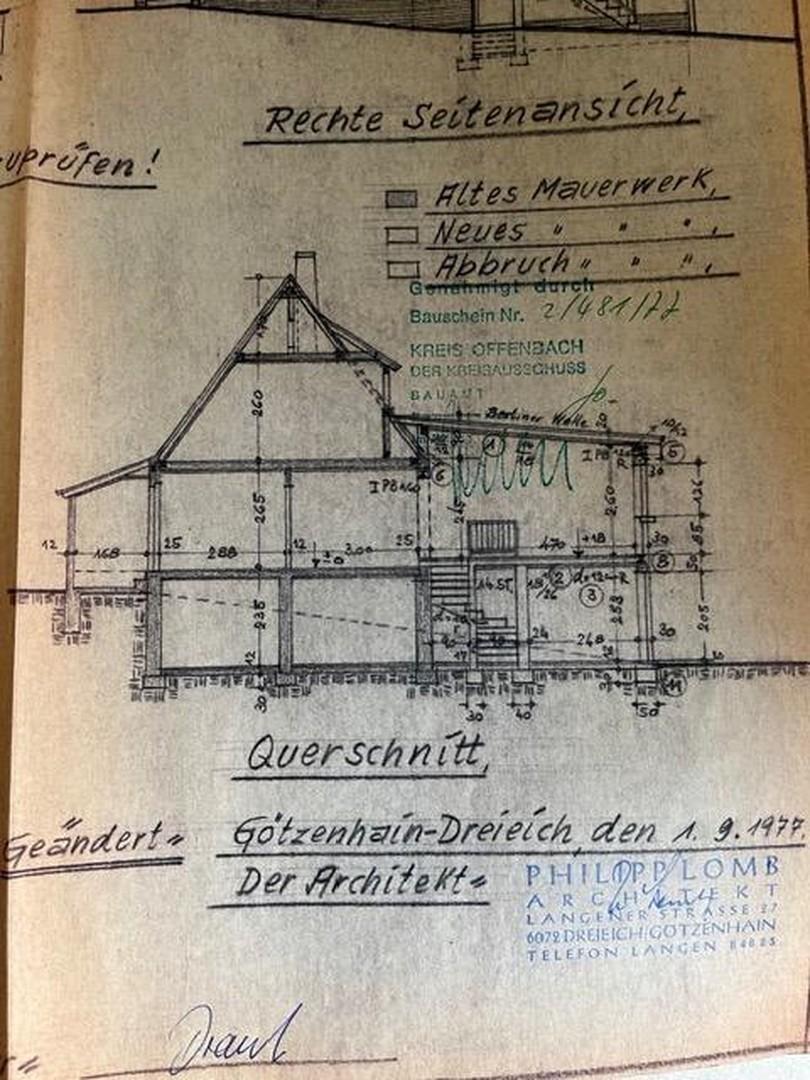 Rechte Seitenansicht,
prüfen!
Altes Mauerwerk,
Neues " " ",
Abbruch " " ",
Genehmigt durch
Bauschein Nr. 2/481/77
KREIS OFFENBACH
DER KREISAUSSCHUSS
BAUAMT
Berliner Welle
260
1
I PB
30
6
I PB 160
265
260
126
85
12
168
25
288
12
3,00
25
470
+18
30
50
8
14 ST.
18/26
2
3
235
253
205
24
248
30
12
17
30
30
40
50
11
Querschnitt,
Geändert"
Götzenhain-Dreieich, den 1. 9. 1977.
Der Architekt"
PHILIPP LOMB
ARCHITEKT
LANGENER STRASSE 27
6072 DREIEICH/GÖTZENHAIN
TELEFON LANGEN